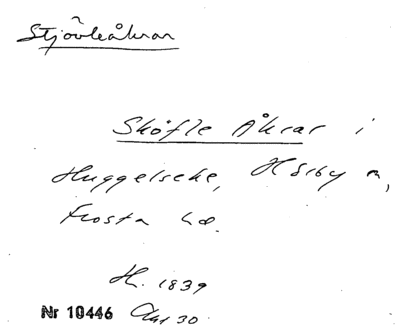 Stjövleåkrar
Sköfle Åkrar i
Huggelseke, Hörby n,
Frosta hd.
H. 1839
Nr 10446 Akt 30